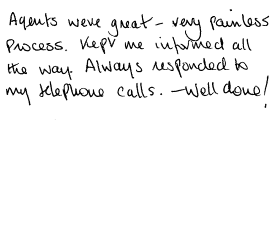 Agents were great - very painless
Process. Kept me informed all
the way. Always responded to
my telephone calls. - Well done!